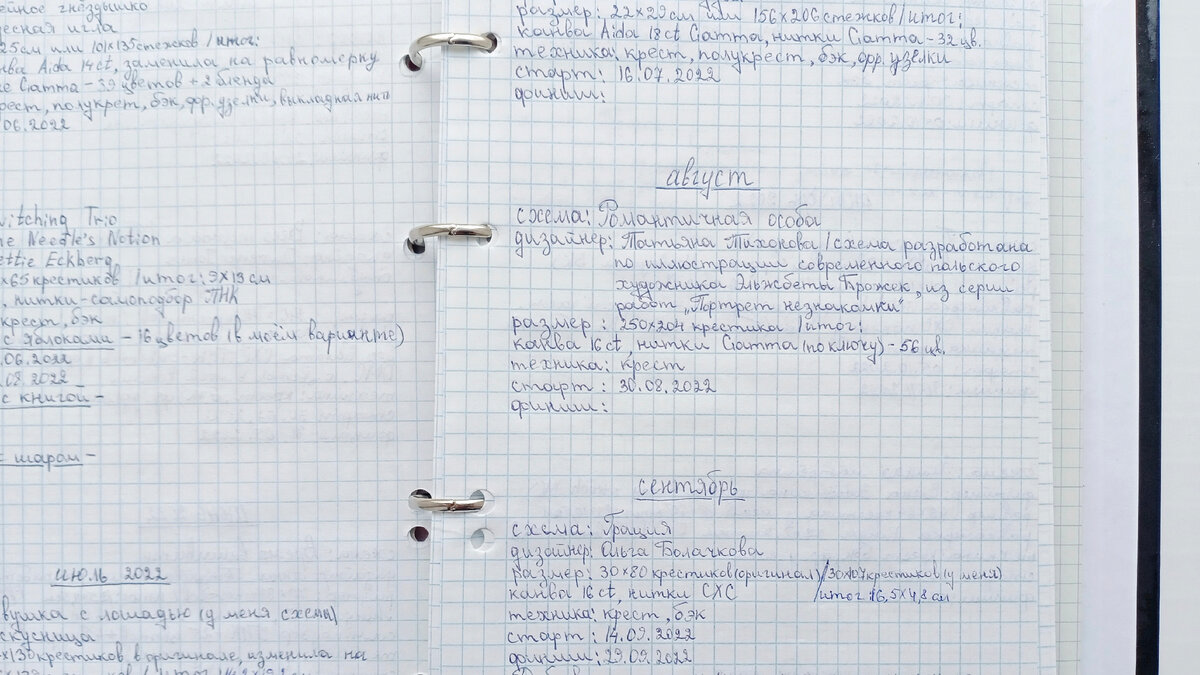 ейное гнёздышко
десная игла
25см или 101х135 стежков / итог:
ва Aida 14ct, заменила на равномерку
е Gamma - 39 цветов + 2 бленда
рест, полукрест, бэк, фр. узелки, выкладная нить
06.2022
witching Trio
he Needle's Notion
ette Eckberg
х65 крестиков / итог: 9х13 см
, нитки - самоподбор ПНК
крест, бэк
с яблоками - 16 цветов (в моём варианте)
.06.2022
.08.2022
с книгой -
с шаром -
июль 2022
вушка с лошадью (у меня схемы)
скусница
х130 крестиков в оригинале, изменила на
размер: 22х29 см или 156х206 стежков / итог:
канва Aida 18ct Gamma, нитки Gamma - 32 цв.
техника: крест, полукрест, бэк, фр. узелки
старт: 16.07.2022
финиш:
август
схема: Романтичная особа
дизайнер: Татьяна Тихонова / схема разработана
по иллюстрации современного польского
художника Эльжбеты Брожек, из серии
работ „Портрет незнакомки"
размер: 250х204 крестика / итог:
канва 16ct, нитки Gamma (по ключу) - 56 цв.
техника: крест
старт: 30.08.2022
финиш:
сентябрь
схема: Грация
дизайнер: Ольга Болачкова
размер: 30х80 крестиков (оригинал) / 30х107 крестиков (у меня)
канва 16ct, нитки СХС / итог 16,5х4,8 см
техника: крест, бэк
старт: 14.09.2022
финиш: 29.09.2022